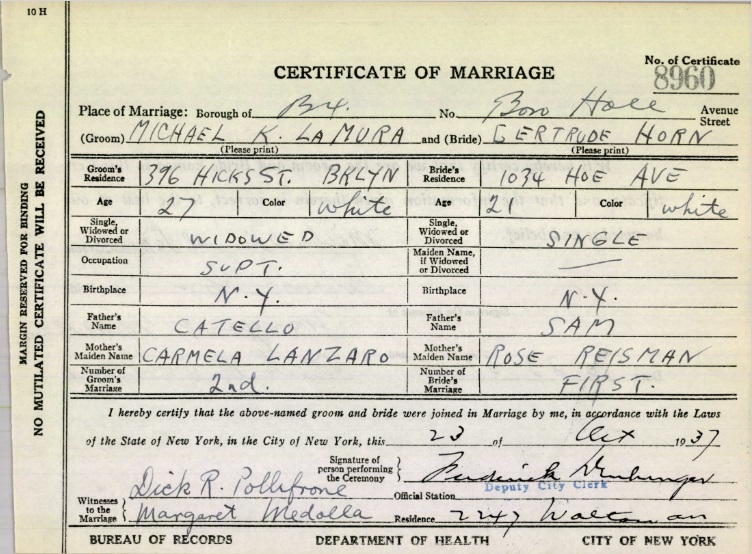 10 H
MARGIN RESERVED FOR BINDING
NO MUTILATED CERTIFICATE WILL BE RECEIVED
CERTIFICATE OF MARRIAGE
No. of Certificate
8960
Place of Marriage: Borough of Bx. No Boro Hall Avenue Street
(Groom) MICHAEL K. LAMURA and (Bride) GERTRUDE HORN
(Please print) (Please print)
Groom's Residence 396 HICKS ST. BKLYN Bride's Residence 1034 HOE AVE
Age 27 Color white Age 21 Color white
Single, Widowed or Divorced WIDOWED Single, Widowed or Divorced SINGLE
Occupation SUPT. Maiden Name, if Widowed or Divorced —
Birthplace N.Y. Birthplace N.Y.
Father's Name CATELLO Father's Name SAM
Mother's Maiden Name CARMELA LANZARO Mother's Maiden Name ROSE REISMAN
Number of Groom's Marriage 2nd. Number of Bride's Marriage FIRST.
I hereby certify that the above-named groom and bride were joined in Marriage by me, in accordance with the Laws
of the State of New York, in the City of New York, this 23 of Oct 1937
Signature of person performing the Ceremony Frederick
Deputy City Clerk
Witnesses to the Marriage Dick R. Pollifrone Official Station
Margaret Medolla Residence 2247 Walton av
BUREAU OF RECORDS DEPARTMENT OF HEALTH CITY OF NEW YORK